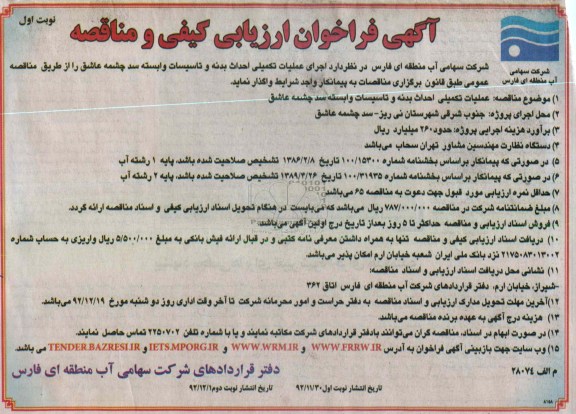 آگهی فراخوان ارزیابی کیفی و مناقصه
نوبت اول
شرکت سهامی
آب منطقه ای فارس
شرکت سهامی آب منطقه ای فارس در نظردارد اجرای عملیات تکمیلی احداث بدنه و تاسیسات وابسته سد چشمه عاشق را از طریق مناقصه
عمومی طبق قانون برگزاری مناقصات به پیمانکار واجد شرایط واگذار نماید.
۱) موضوع مناقصه: عملیات تکمیلی احداث بدنه و تاسیسات وابسته سد چشمه عاشق
۲) محل اجرای پروژه: جنوب شرقی شهرستان نی ریز-سد چشمه عاشق
۳) برآورد هزینه اجرایی پروژه: حدود ۲۶۰ میلیارد ریال
۴) دستگاه نظارت مهندسین مشاور تهران سحاب می‌باشد
۵) در صورتی که پیمانکار براساس بخشنامه شماره ۱۰۰/۱۵۳۰۰ تاریخ ۱۳۸۶/۲/۸ تشخیص صلاحیت شده باشد، پایه ۱ رشته آب
۶) در صورتی که پیمانکار براساس بخشنامه شماره ۱۰۰/۳۱۹۳۵ تاریخ ۱۳۸۹/۴/۲۶ تشخیص صلاحیت شده باشد، پایه ۲ رشته آب
۷) حداقل نمره ارزیابی مورد قبول جهت دعوت به مناقصه ۶۵ می‌باشد
۸) مبلغ ضمانتنامه شرکت در مناقصه ۷۸۷/۰۰۰/۰۰۰ ریال می‌باشد که می‌بایست در هنگام تحویل اسناد ارزیابی کیفی و اسناد مناقصه ارائه گردد.
۹) فروش اسناد ارزیابی و مناقصه حداکثر تا ۵ روز بعداز تاریخ درج اولین آگهی می‌باشد.
۱۰) دریافت اسناد ارزیابی کیفی و مناقصه تنها به همراه داشتن معرفی نامه کتبی و در قبال ارائه فیش بانکی به مبلغ ۵/۵۰۰/۰۰۰ ریال واریزی به حساب شماره
۲۱۷۵۰۸۳۰۱۳۰۰۲ نزد بانک ملی ایران شعبه خیابان ارم امکان پذیر می‌باشد.
۱۱) نشانی محل دریافت اسناد ارزیابی و اسناد مناقصه:
-شیراز، خیابان ارم. دفتر قراردادهای شرکت آب منطقه ای فارس اتاق ۳۶۲
۱۲) آخرین مهلت تحویل مدارک ارزیابی و اسناد مناقصه به دفتر حراست و امور محرمانه شرکت تا آخر وقت اداری روز دو شنبه مورخ ۹۲/۱۲/۱۹ می‌باشد.
۱۳) هزینه درج آگهی به عهده برنده مناقصه می‌باشد.
۱۴) در صورت ابهام در اسناد، مناقصه گران می‌توانند بادفتر قراردادهای شرکت مکاتبه نمایند و یا با شماره تلفن ۲۲۵۰۷۰۲ تماس حاصل نمایند.
۱۵) وب سایت جهت بازبینی آگهی فراخوان به آدرس WWW.FRRW.IR و WWW.WRM.IR و IETS.MPORG.IR و TENDER.BAZRESI.IR می باشد.
م الف ۲۸۰۷۴
دفتر قراردادهای شرکت سهامی آب منطقه ای فارس
تاریخ انتشار نوبت اول: ۹۲/۱۱/۳۰
تاریخ انتشار نوبت دوم: ۹۲/۱۲/۱